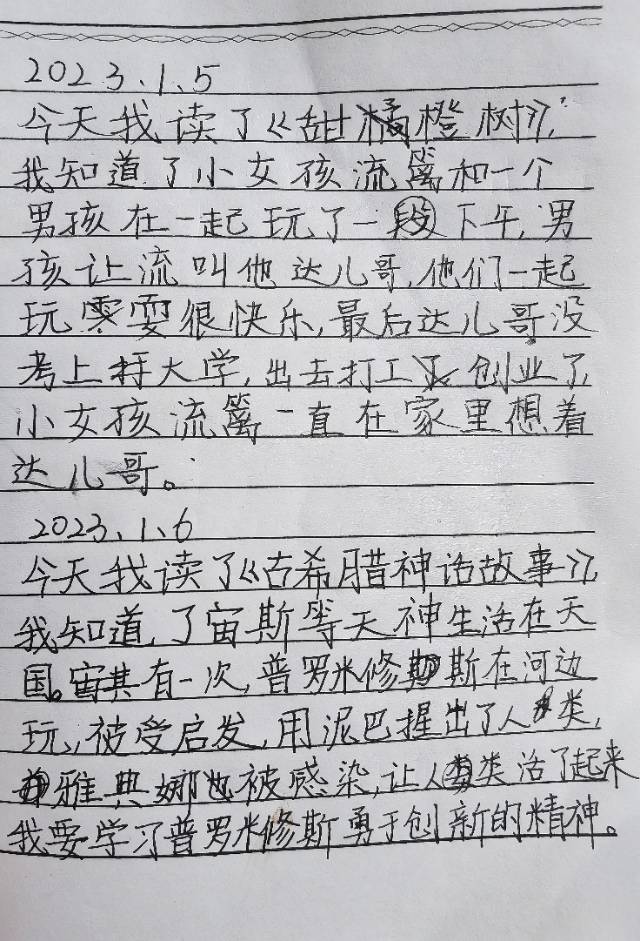 2023.1.5
今天我读了《甜橘橙树》,
我知道了小女孩流篱和一个
男孩在一起玩了一段下午,男
孩让流叫他达儿哥,他们一起
玩零耍很快乐,最后达儿哥没
考上大学,出去打工创业了,
小女孩流篱一直在家里想着
达儿哥。
2023.1.6
今天我读了《古希腊神话故事》,
我知道,了宙斯等天神生活在天
国。其有一次,普罗米修斯在河边
玩,被受启发,用泥巴捏出了人类,
雅典娜也被感染,让人类活了起来
我要学习普罗米修斯勇于创新的精神。